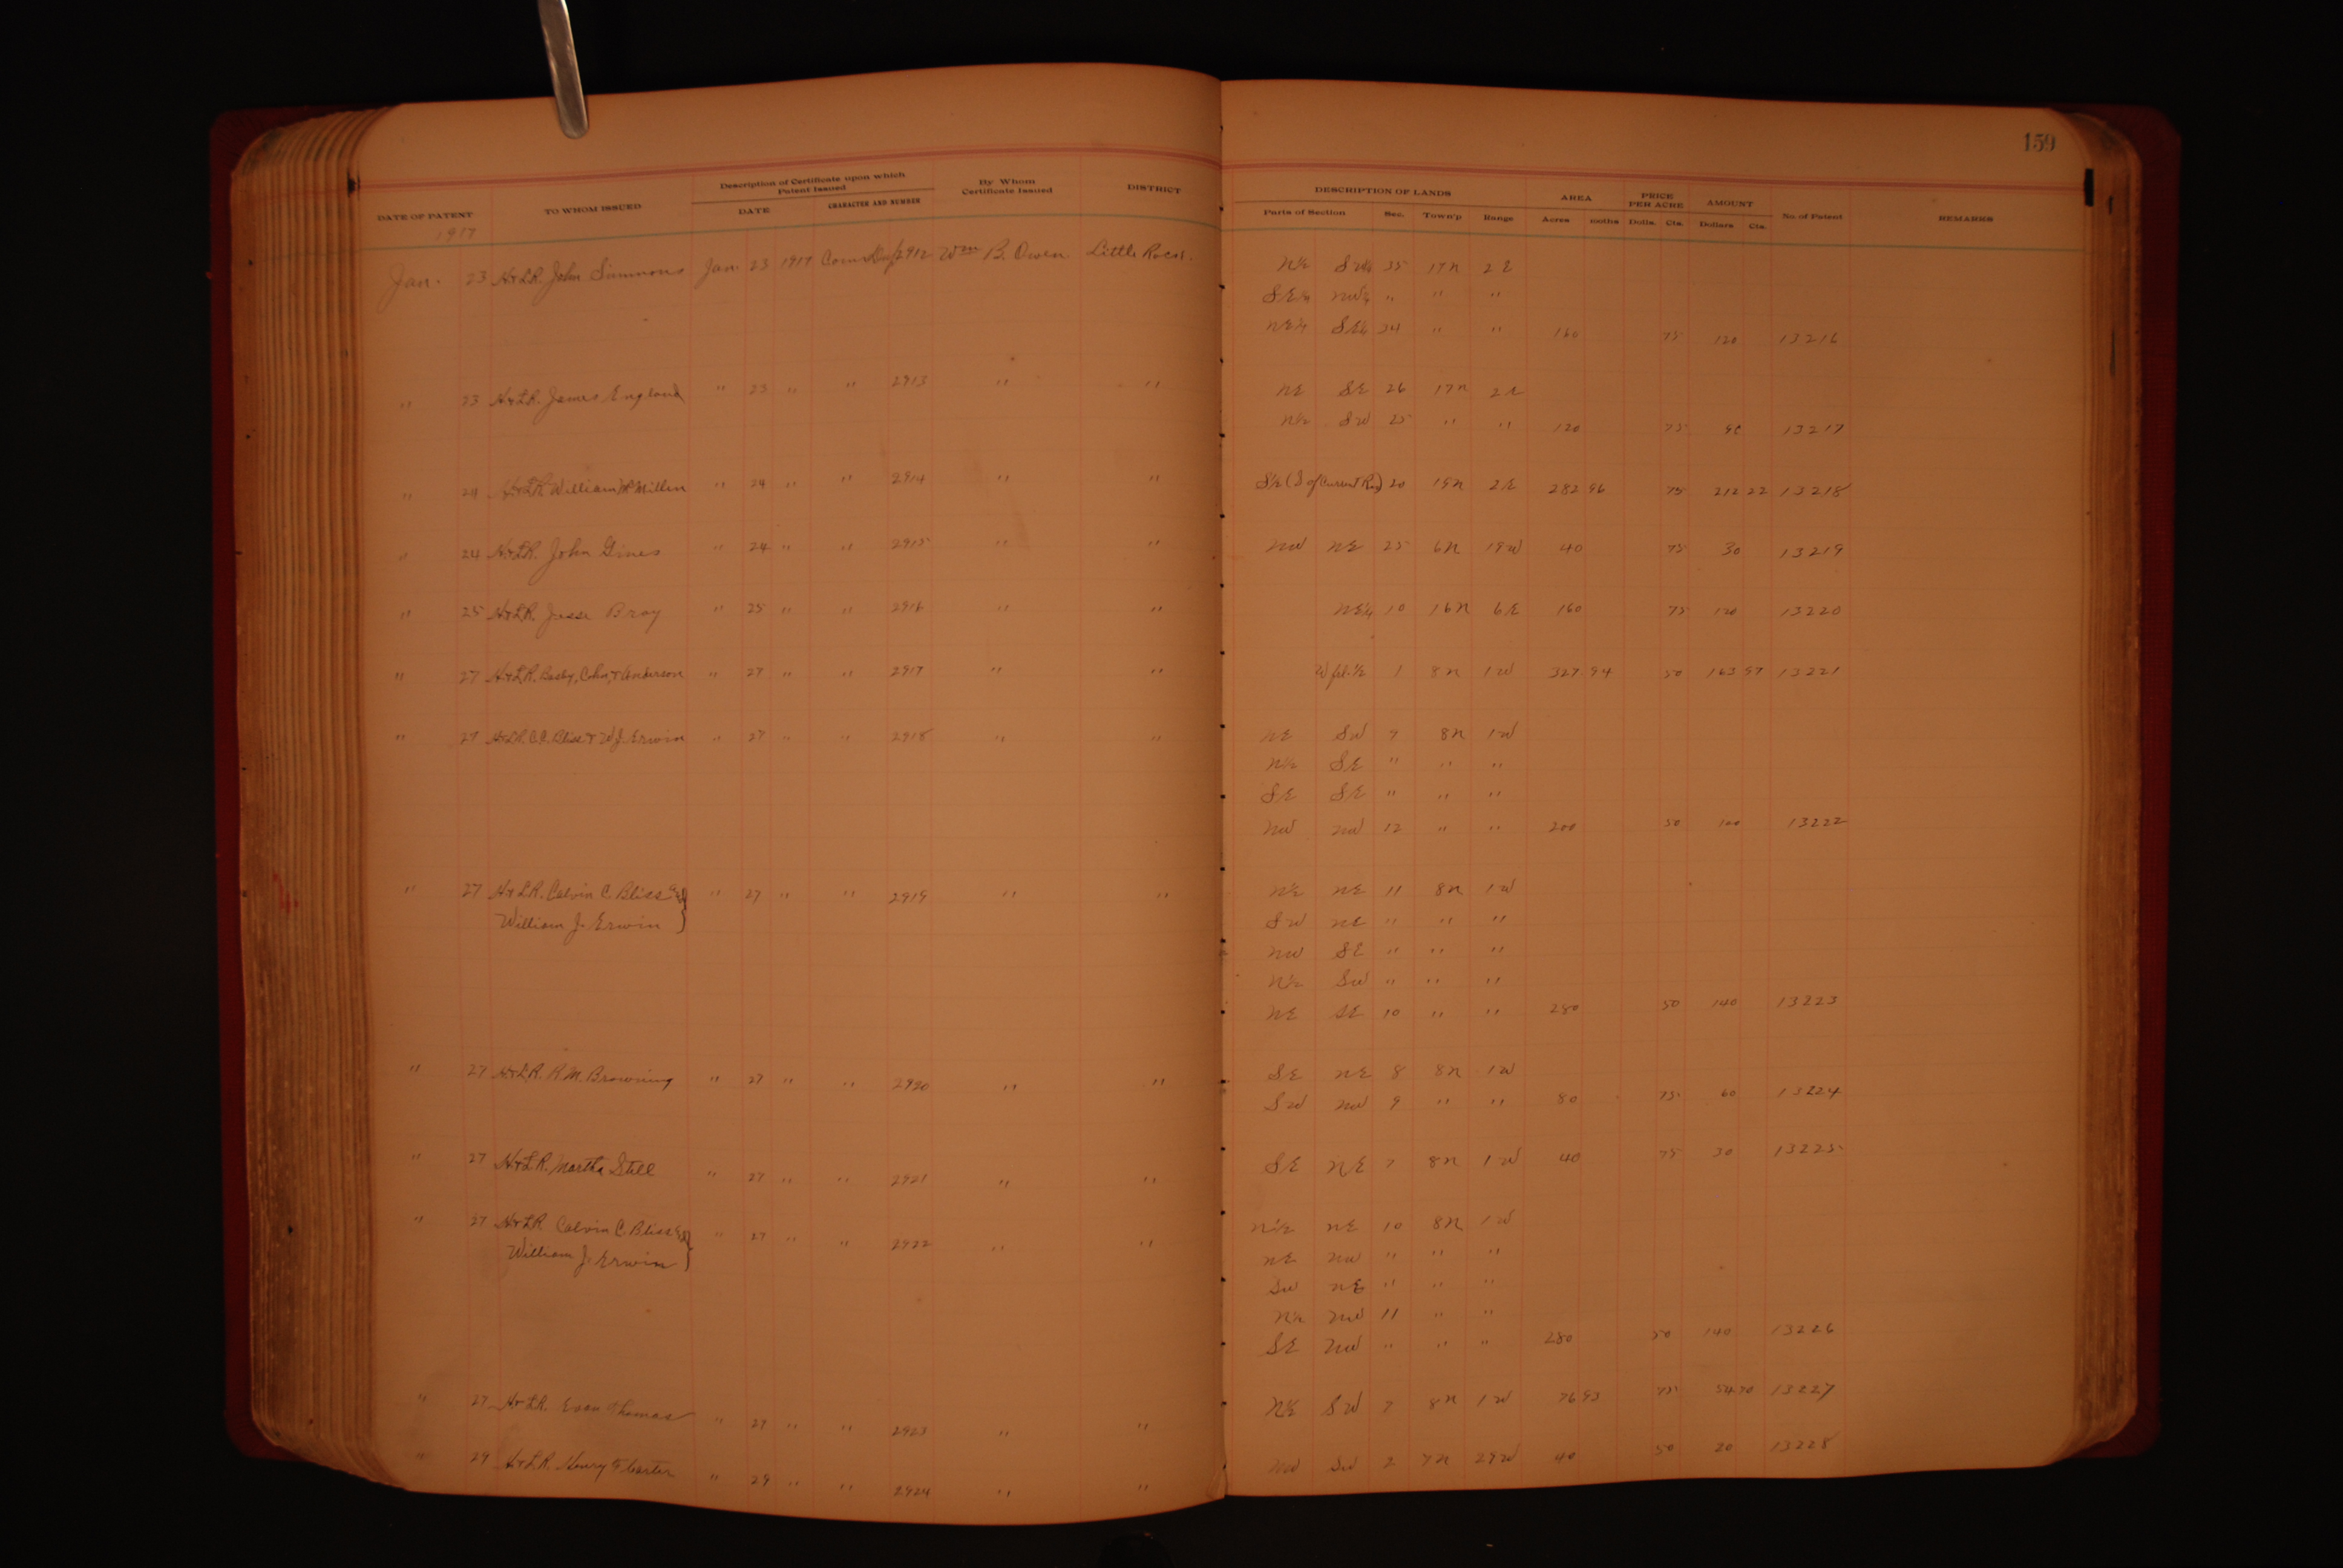 159
DATE OF PATENT TO WHOM ISSUED Description of Certificate upon which Patent Issued DATE CHARACTER AND NUMBER By Whom Certificate Issued DISTRICT DESCRIPTION OF LANDS Parts of Section Sec. Town'p Range AREA Acres PRICE PER ACRE Dolls. Cts. AMOUNT Dollars Cts. No of Patent REMARKS
1917
Jan. 23 H&LR. John Simmons Jan. 23 1917 2912 Wm B. Owen. Little Rock. N½ SW¼ 35 17N 2E
SE¼ NW¼ " " "
NE¼ SE¼ 34 " " 160 75 120 13216
" 23 H&LR. James England " 23 " " 2913 " " NE SE 26 17N 2E
N½ SW 25 " " 120 75 90 13217
" 24 H&LR. William McMillin " 24 " " 2914 " " S½ (S of Current Riv) 20 19N 2E 282 96 75 212 22 13218
" 24 H&LR. John Gines " 24 " " 2915 " " NW NE 25 6N 19W 40 75 30 13219
" 25 H&LR. Jesse Bray " 25 " " 2916 " " NE¼ 10 16N 6E 160 75 120 13220
" 27 H&LR. Beeby, Cohn, & Anderson " 27 " " 2917 " " W frl. ½ 1 8N 1W 327 94 50 163 97 13221
" 27 H&LR. C.C. Bliss & W.J. Erwin " 27 " " 2918 " " NE SW 7 8N 1W
N½ SE " " "
SE SE " " "
NW NW 12 " " 200 50 100 13222
" 27 H&LR. Calvin C. Bliss and " 27 " " 2919 " " N½ NE 11 8N 1W
William J. Erwin SW NE " " "
NW SE " " "
N½ SW " " "
NE SE 10 " " 280 50 140 13223
" 27 H&LR. R.M. Browning " 27 " " 2920 " " SE NE 8 8N 1W
SW NW 9 " " 80 75 60 13224
" 27 H&LR. Martha Still " 27 " " 2921 " " SE NE 7 8N 1W 40 75 30 13225
" 27 H&LR Calvin C. Bliss and " 27 " " 2922 " " N½ NE 10 8N 1W
William J. Erwin NE NW " " "
SW NE " " "
N½ NW 11 " "
SE NW " " " 280 50 140 13226
" 27 H&LR. Evan Thomas " 27 " " 2923 " " N½ SW 7 8N 1W 76 93 75 54 70 13227
" 29 H&LR. Henry Carter " 29 " " 2924 " " NW SW 2 7N 29W 40 50 20 13228